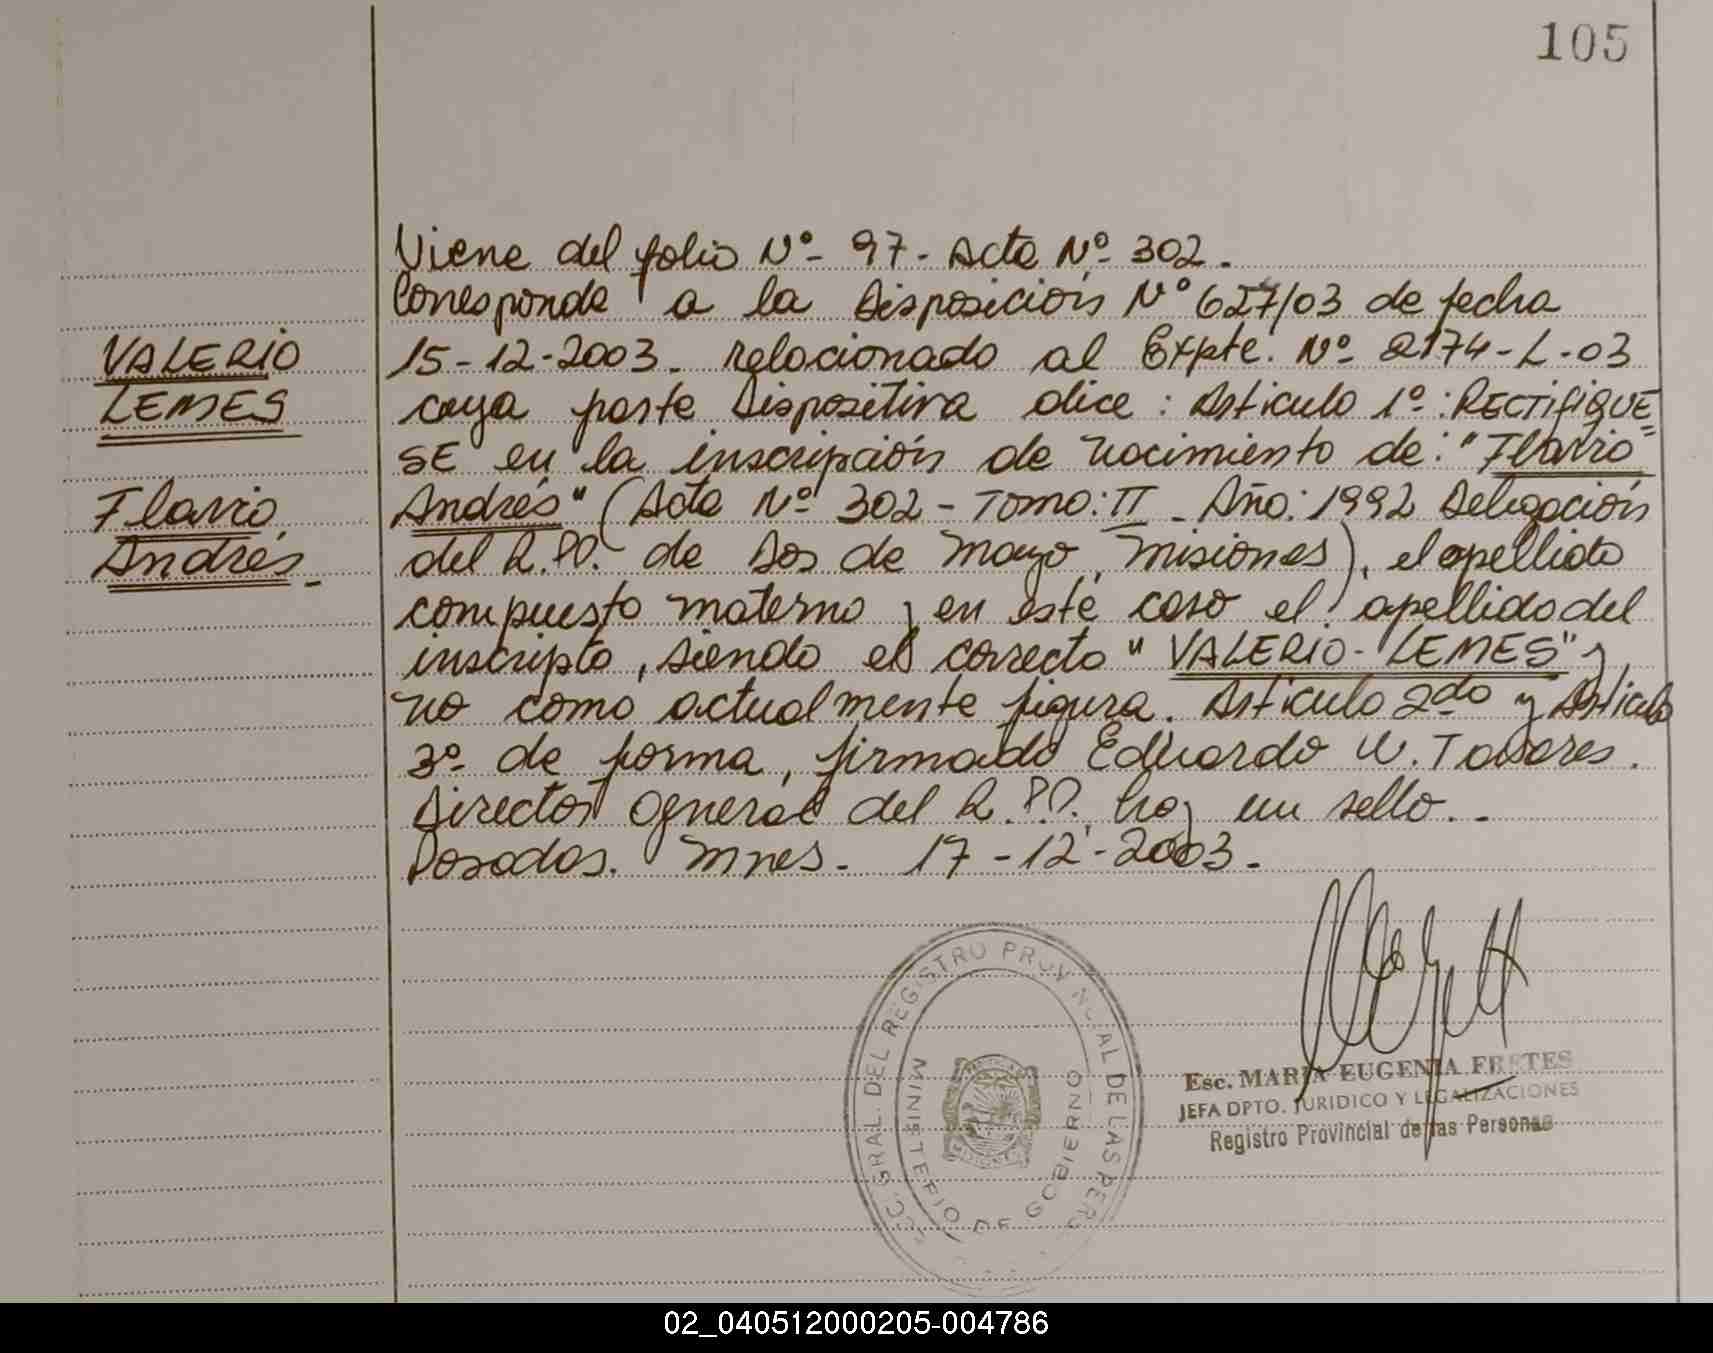 105
Viene del folio Nº- 97- Acta Nº 302.
Corresponde a la Disposición Nº 627/03 de fecha
VALERIO
15-12-2003. relacionado al Expte. Nº- 2174-L-03
LEMES
cuya parte Dispositiva dice: Articulo 1º: RECTIFIQUE
SE en la inscripción de nacimiento de: "Flavio
Flavio
Andrés" (Acta Nº 302 - Tomo: II - Año: 1992 Delegación
Andrés.-
del R.P.P. de Dos de Mayo, Misiones), el apellido
compuesto materno y en este caso el apellido del
inscripto, siendo el correcto "VALERIO-LEMES" y
no como actualmente figura. Articulo 2do y Articulo
3º de forma, firmado Eduardo W. Tavares.
Director General del R.P.P. hay un sello..-
Posadas. Mnes- 17-12-2003.-
GRAL. DEL REGISTRO PROVINCIAL DE LAS PERS
MINISTERIO DE GOBIERNO
Esc. MARIA EUGENIA FRETES
JEFA DPTO. JURIDICO Y LEGALIZACIONES
Registro Provincial de las Personas
02_040512000205-004786